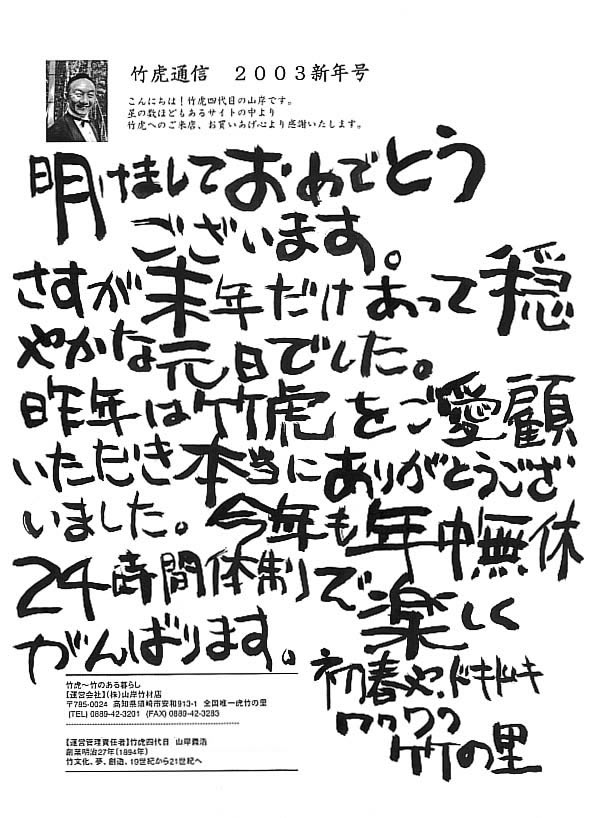 竹虎通信　２００３新年号
こんにちは！竹虎四代目の山岸です。
星の数ほどもあるサイトの中より
竹虎へのご来店、お買いあげ心より感謝いたします。
明けましておめでとう
ございます。
さすが未年だけあって穏
やかな元日でした。
昨年は竹虎をご愛顧
いただき本当にありがとうござ
いました。今年も年中無休
24時間体制で楽しく
がんばります。
初春や、ドキドキ
ワクワク
竹の里
竹虎～竹のある暮らし
【運営会社】(株)山岸竹材店
〒785-0024　高知県須崎市安和913-1　全国唯一虎竹の里
(TEL) 0889-42-3201　(FAX) 0889-42-3283
【運営管理責任者】竹虎四代目　山岸義浩
創業明治27年(1894年)
竹文化、夢、創造、19世紀から21世紀へ